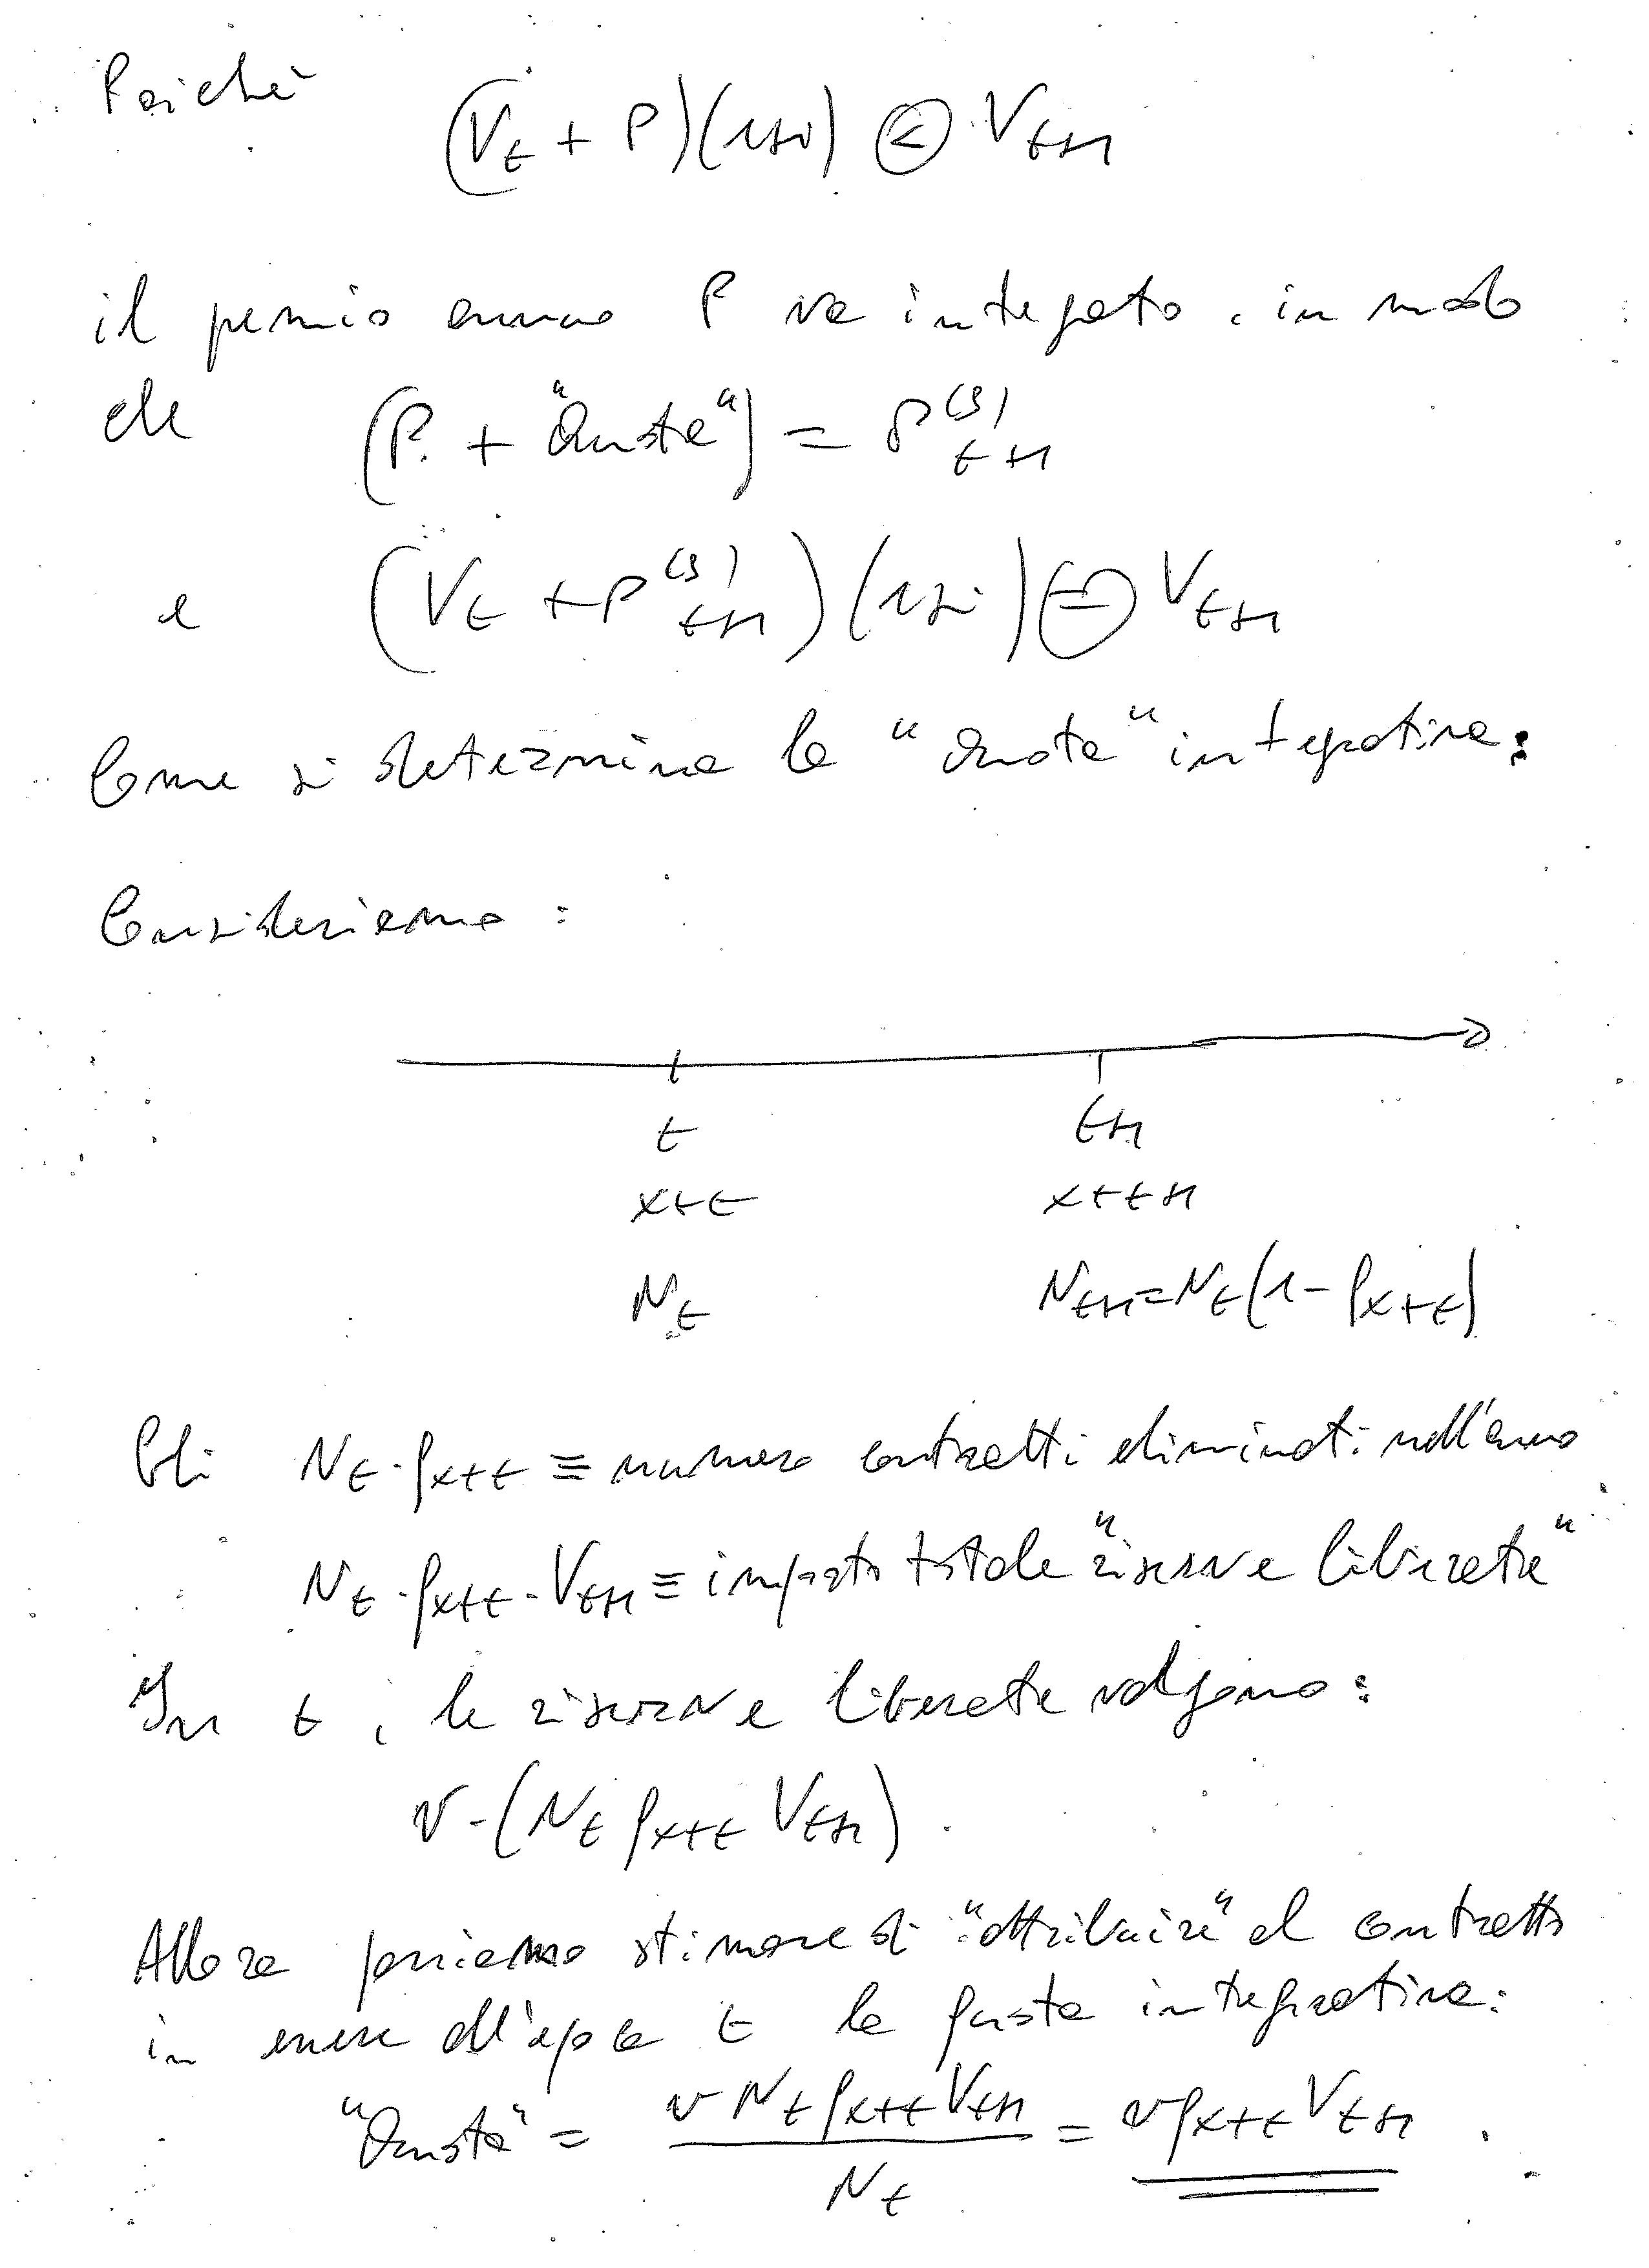 Poichè
(V_t + P)(1+i) < V_{t+1}
il premio annuo P va integrato, in modo
che (P + "Quota") = P^{(s)}_{t+1}
e (V_t + P^{(s)}_{t+1})(1+i) = V_{t+1}
Come si determina la "Quota" integrativa:
Consideriamo :
t t+1
x+t x+t+1
N_t N_{t+1} = N_t(1 - q_{x+t})
Gli N_t · q_{x+t} ≡ numero contratti eliminati nell'anno
N_t · q_{x+t} · V_{t+1} ≡ importo totale "riserve liberate"
In t, le riserve liberate valgono:
v · (N_t q_{x+t} V_{t+1}) .
Allora possiamo stimare di "attribuire" al contratto
in essere all'epoca t la quota integrativa:
"Quota" = \frac{v N_t q_{x+t} V_{t+1}}{N_t} = v q_{x+t} V_{t+1} .